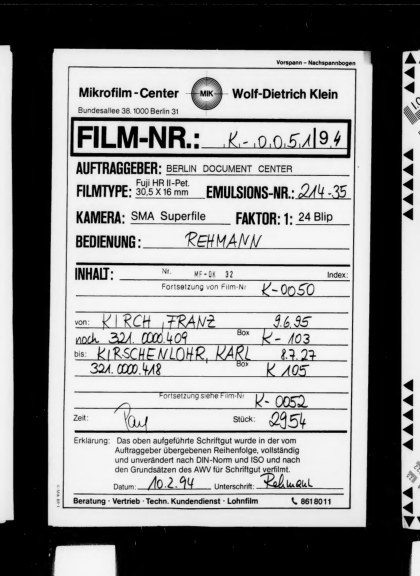 Vorspann - Nachspannbogen
Mikrofilm - Center MIK Wolf-Dietrich Klein
Bundesallee 38, 1000 Berlin 31
FILM-NR.: K-0051/94
AUFTRAGGEBER: BERLIN DOCUMENT CENTER
FILMTYPE: Fuji HR II-Pet. 30,5 X 16 mm EMULSIONS-NR.: 214-35
KAMERA: SMA Superfile FAKTOR: 1: 24 Blip
BEDIENUNG: REHMANN
INHALT: Nr. MF-OK 32 Index:
Fortsetzung von Film-Nr K-0050
von: KIRCH, FRANZ 9.6.95
noch 321.0000.409 Box K-103
bis: KIRSCHENLOHR, KARL 8.7.27
321.0000.418 Box K 105
Fortsetzung siehe Film-Nr K-0052
Zeit: Stück: 2954
Erklärung: Das oben aufgeführte Schriftgut wurde in der vom
Auftraggeber übergebenen Reihenfolge, vollständig
und unverändert nach DIN-Norm und ISO und nach
den Grundsätzen des AWV für Schriftgut verfilmt.
Datum: 10.2.94 Unterschrift: Rehmann
Beratung · Vertrieb · Techn. Kundendienst · Lohnfilm 8618011